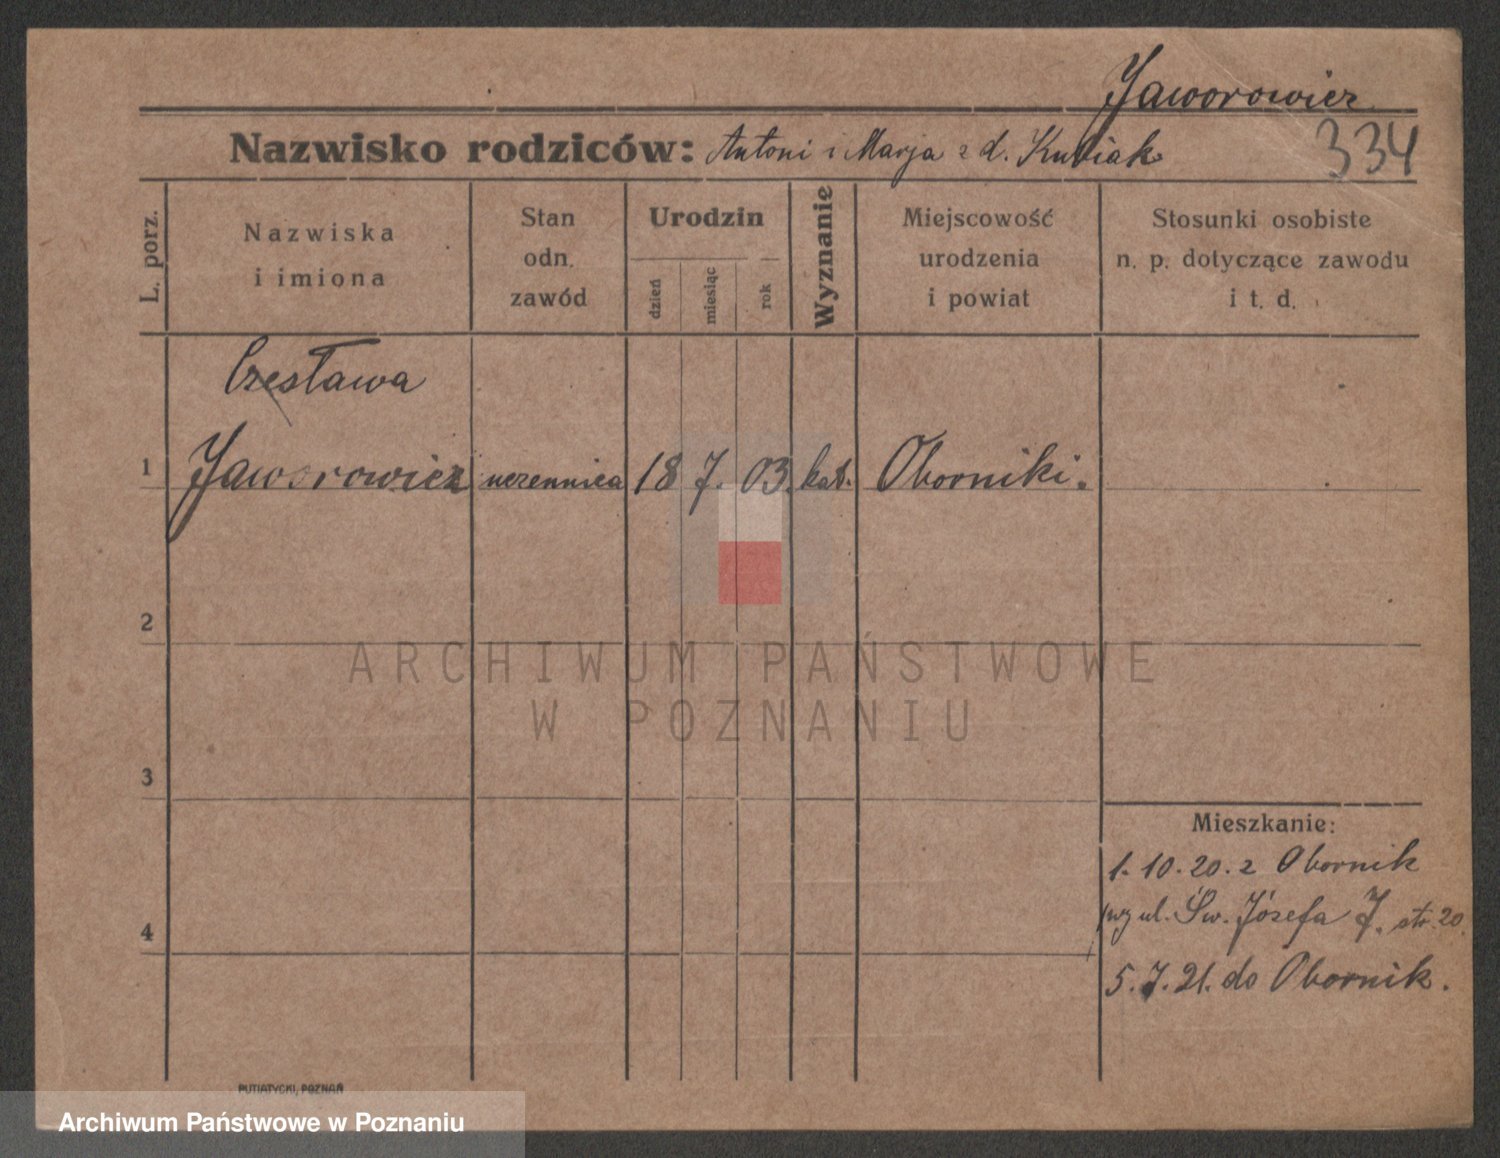 Jaworowicz
Nazwisko rodziców: Antoni i Marja z d. Kubiak
334
L. porz.
Nazwiska
i imiona
Stan
odn.
zawód
Urodzin
dzień
miesiąc
rok
Wyznanie
Miejscowość
urodzenia
i powiat
Stosunki osobiste
n. p. dotyczące zawodu
i t. d.
Czesława
1 Jaworowicz uczennica 18 7. 03. kat. Oborniki.
2
ARCHIWUM PAŃSTWOWE
W POZNANIU
3
Mieszkanie:
1. 10. 20. z Obornik
ul. Św. Józefa 7. str. 20.
4
5. 7. 21. do Obornik.
PUTIATYCKI, POZNAŃ
Archiwum Państwowe w Poznaniu